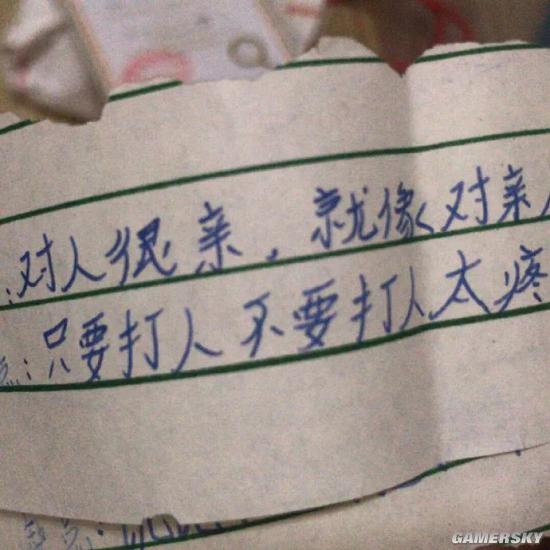 :对人很亲,就像对亲人
点:只要打人不要打人太疼
GAMERSKY